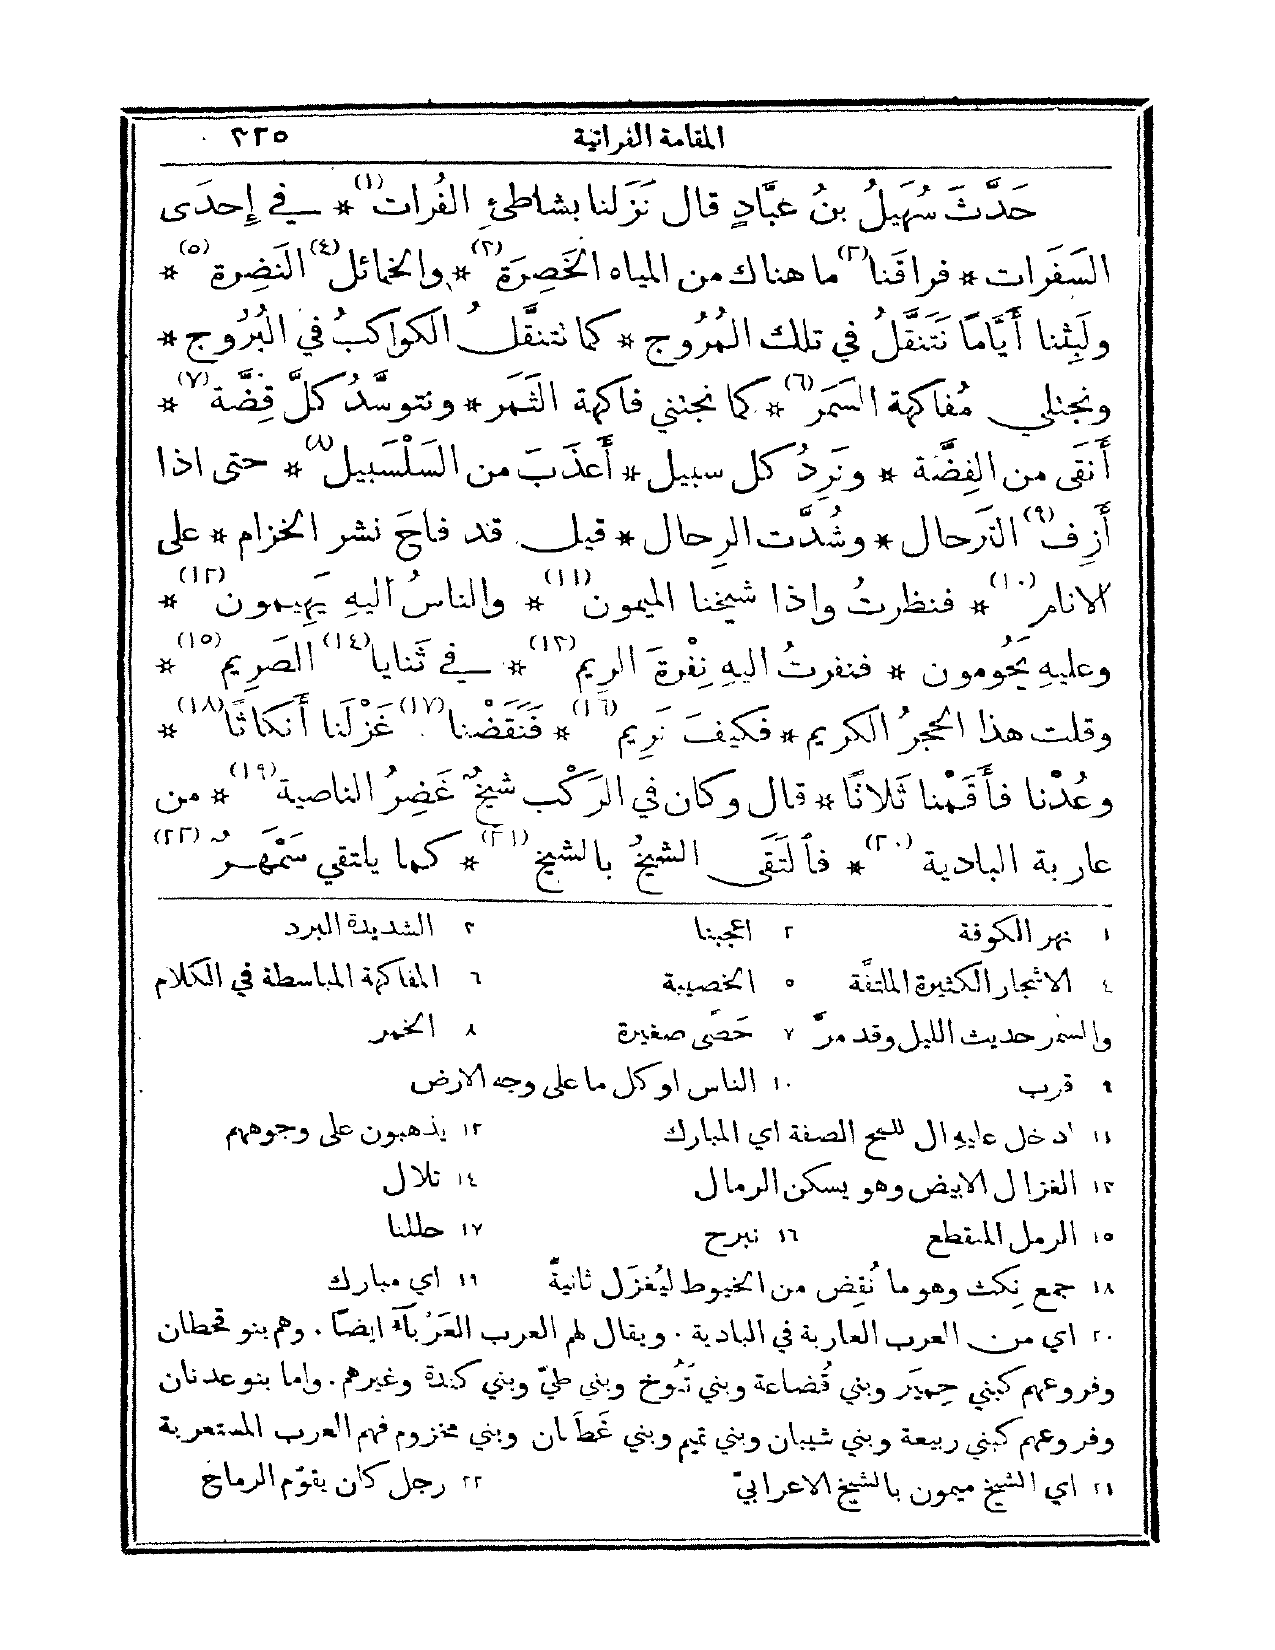 المقامة الفراتية ٢٢٥
حَدَّثَ سُهَيلُ بنُ عبَّادٍ قال نَزَلنا بشاطئِ الفُرات(١) * في إِحدَى
السَفَرات * فراقَنا(٢) ما هناك من المياه الخَصِرَة(٣) * والخمائل(٤) النَضِرة(٥) *
ولَبِثْنا أَيَّامًا نَتَنقَّلُ في تلك المُرُوج * كما تتنقَّل الكواكبُ في البُرُوج *
ونجتلي مُفاكهة السَمَر(٦) * كما نجتني فاكهة الثَمَر * ونتوسَّدُ كلَّ قِضَّة(٧) *
أَنقَى من الفِضَّة * ونَرِدُ كل سبيل * أَعذَبَ من السَلْسَبيل(٨) * حتى اذا
أَزِف(٩) الترحال * وشُدَّت الرِحال * قيل قد فاحَ نشر الخزام * على
الانام(١٠) * فنظرتُ واذا شيخنا الميمون(١١) * والناسُ اليهِ يَهِيمون(١٢) *
وعليهِ يَحُومون * فنفرتُ اليهِ نِفْرةَ الريم(١٣) * في ثَنايا(١٤) الصَرِيم(١٥) *
وقلت هذا الحجرُ الكريم * فكيفَ نَرِيم(١٦) * فَنَقَضْنا(١٧) غَزْلَنا أَنكاثًا(١٨) *
وعُدْنا فأَقَمْنا ثَلاثًا * قال وكان في الرَكْب شيخٌ غَضِرُ الناصية(١٩) * من
عاربة البادية(٢٠) * فألتَقَى الشيخُ بالشيخ(٢١) * كما يلتقي سَمْهَرٌ(٢٢)
١ نهر الكوفة ٢ اعجبنا ٣ الشديدة البرد
٤ الاشجار الكثيرة الملتفَّة ٥ الخصيبة ٦ المفاكهة المباسطة في الكلام
والسمر حديث الليل وقد مرَّ ٧ حَصًى صغيرة ٨ الخمر
٩ قرب ١٠ الناس او كل ما على وجه الارض
١١ ادخل عليهِ ال للمح الصفة اي المبارك ١٢ يذهبون على وجوههم
١٣ الغزال الابيض وهو يسكن الرمال ١٤ تلال
١٥ الرمل المنقطع ١٦ نبرح ١٧ حللنا
١٨ جمع نِكث وهو ما نُقِض من الخيوط ليُغزَل ثانيةً ١٩ اي مبارك
٢٠ اي من العرب العاربة في البادية . ويقال لهم العرب العَرْبآء ايضًا . وهم بنو قحطان
وفروعهم كبني حِميَر وبني قُضاعة وبني تَنُوخ وبني طيّ وبني كندة وغيرهم . واما بنو عدنان
وفروعهم كبني ربيعة وبني شيبان وبني تميم وبني غَطَفان وبني مخزوم فهم العرب المستعربة
٢١ اي الشيخ ميمون بالشيخ الاعرابيّ ٢٢ رجل كان يقوّم الرماح